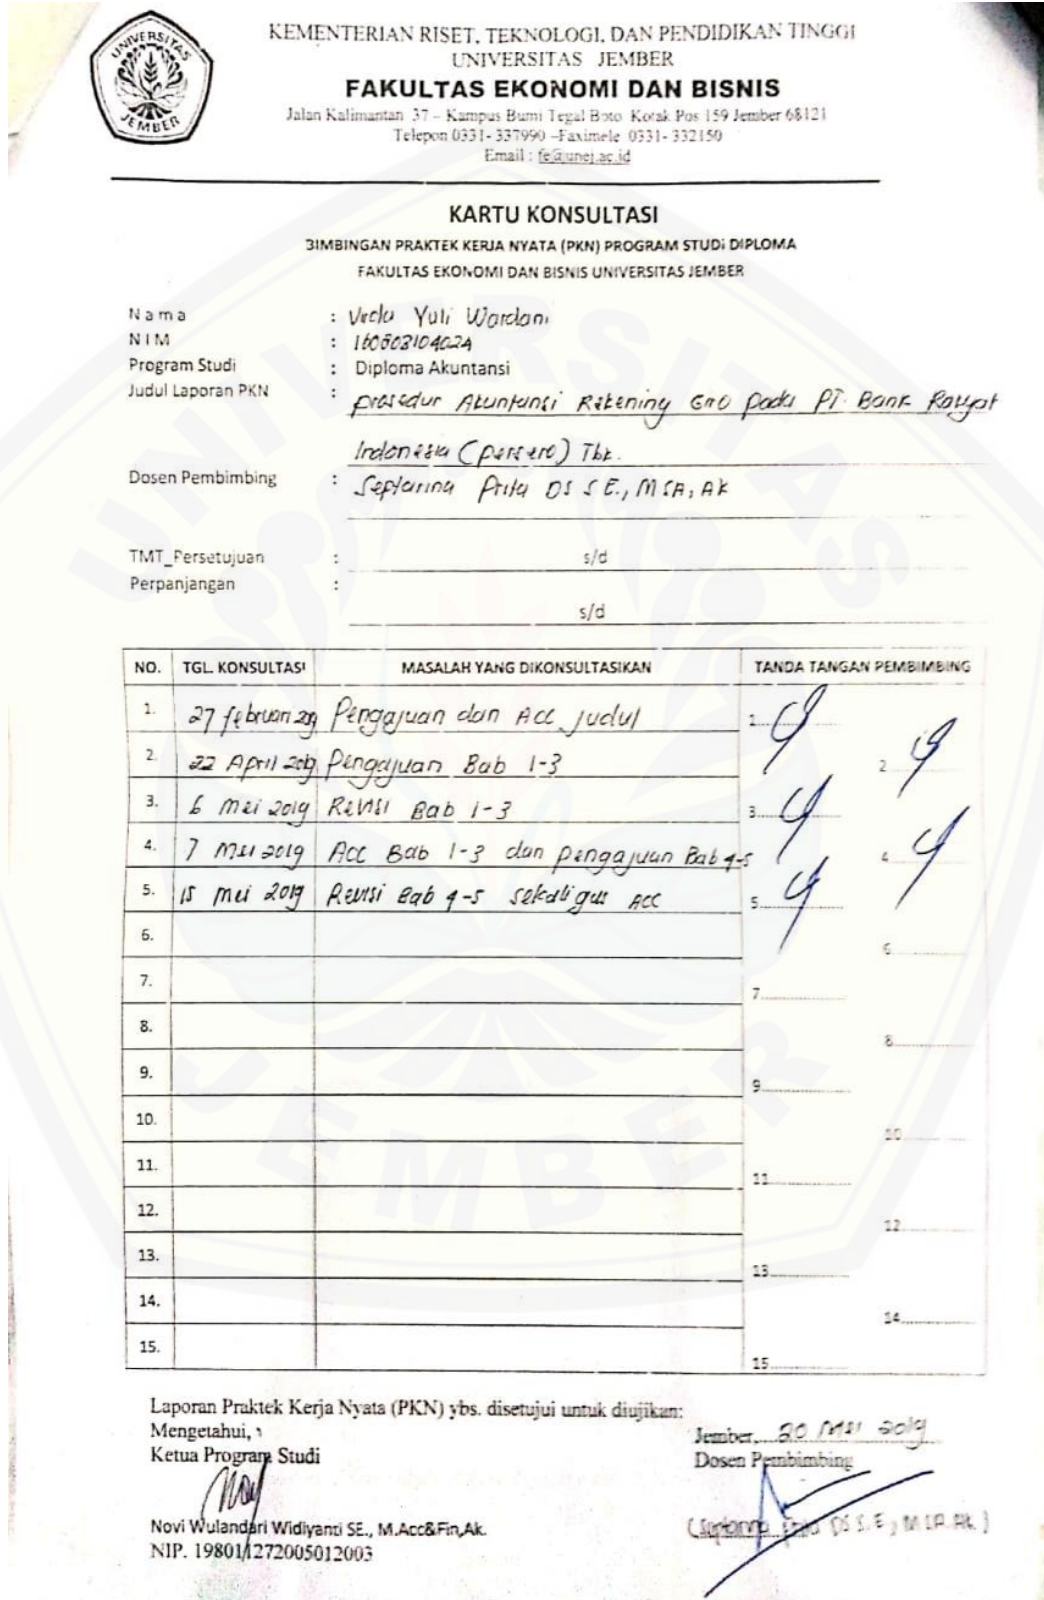 UNIVERSITAS
JEMBER
KEMENTERIAN RISET, TEKNOLOGI, DAN PENDIDIKAN TINGGI
UNIVERSITAS JEMBER
FAKULTAS EKONOMI DAN BISNIS
Jalan Kalimantan 37 – Kampus Bumi Tegal Boto Kotak Pos 159 Jember 68121
Telepon 0331- 337990 –Faximele 0331- 332150
Email : fe@unej.ac.id
KARTU KONSULTASI
BIMBINGAN PRAKTEK KERJA NYATA (PKN) PROGRAM STUDI DIPLOMA
FAKULTAS EKONOMI DAN BISNIS UNIVERSITAS JEMBER
Nama : Yuli Wardani
NIM : 160803104024
Program Studi : Diploma Akuntansi
Judul Laporan PKN : prosedur Akuntansi Rekening Giro pada PT. Bank Rakyat
Indonesia (persero) Tbk.
Dosen Pembimbing : Septarina Prita DS S.E., MSA, Ak
TMT_Persetujuan : s/d
Perpanjangan :
s/d
NO. TGL. KONSULTASI MASALAH YANG DIKONSULTASIKAN TANDA TANGAN PEMBIMBING
1. 27 februari 2019 Pengajuan dan Acc judul 1
2. 22 April 2019 Pengajuan Bab 1-3 2
3. 6 mei 2019 Revisi Bab 1-3 3
4. 7 Mei 2019 Acc Bab 1-3 dan pengajuan Bab 4-5 4
5. 15 mei 2019 Revisi Bab 4-5 sekaligus ACC 5
6. 6
7. 7
8. 8
9. 9
10. 10
11. 11
12. 12
13. 13
14. 14
15. 15
Laporan Praktek Kerja Nyata (PKN) ybs. disetujui untuk diujikan:
Mengetahui,
Ketua Program Studi
Jember, 20 Mei 2019
Dosen Pembimbing
Novi Wulandari Widiyanti SE., M.Acc&Fin,Ak.
NIP. 198011272005012003
(Septarina Prita DS S.E, MSA. Ak.)